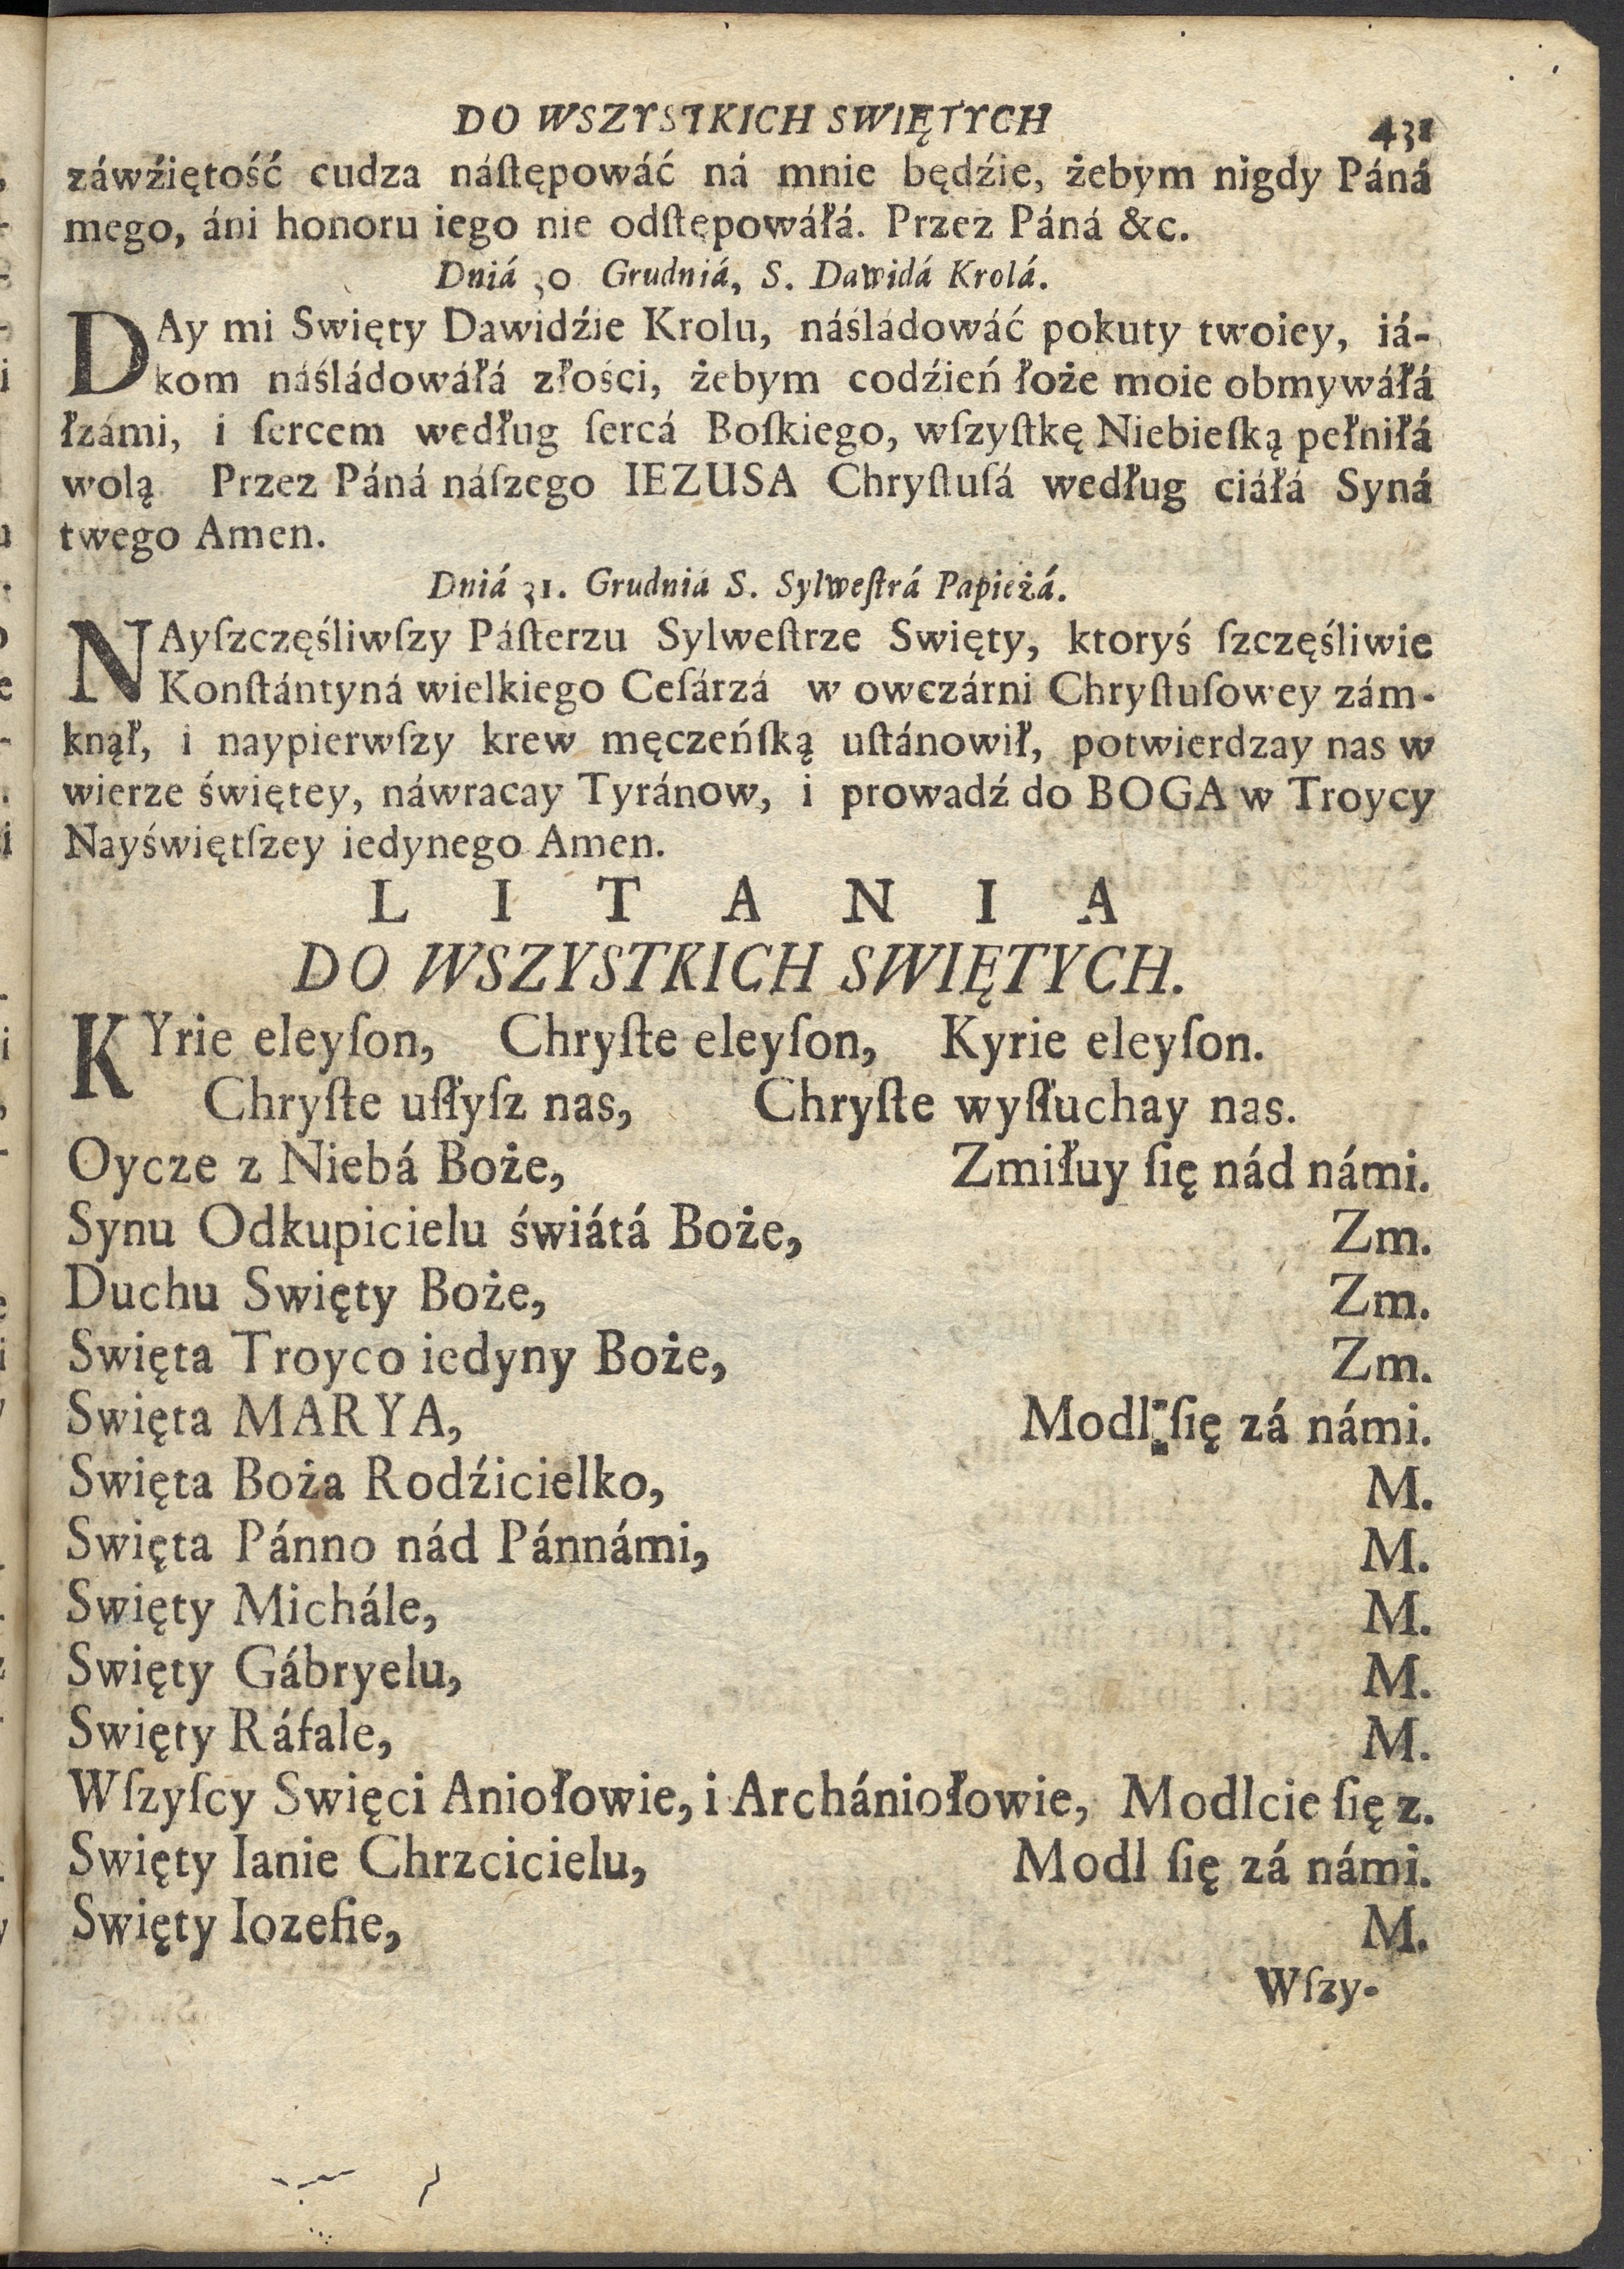 DO WSZYSTKICH SWIĘTYCH 431
záwźiętość cudza náſtępowáć ná mnie będźie, żebym nigdy Páná
mego, áni honoru iego nie odſtępowáłá. Przez Páná &c.
Dniá 30 Grudniá, S. Dawidá Krolá.
DAy mi Swięty Dawidźie Krolu, náśládowáć pokuty twoiey, iá-
kom náśládowáłá złości, żebym codźień łoże moie obmywáłá
łzámi, i ſercem według ſercá Boſkiego, wſzyſtkę Niebieſką pełniłá
wolą Przez Páná náſzego IEZUSA Chryſtuſá według ciáłá Syná
twego Amen.
Dniá 31. Grudniá S. Sylweſtrá Papieżá.
NAyſzczęśliwſzy Páſterzu Sylweſtrze Swięty, ktoryś ſzczęśliwie
Konſtántyná wielkiego Ceſárzá w owczárni Chryſtuſowey zám-
knął, i naypierwſzy krew męczeńſką uſtánowił, potwierdzay nas w
wierze świętey, náwracay Tyránow, i prowadź do BOGA w Troycy
Nayświętſzey iedynego Amen.
L I T A N I A
DO WSZYSTKICH SWIĘTYCH.
KYrie eleyſon, Chryſte eleyſon, Kyrie eleyſon.
Chryſte uſłyſz nas, Chryſte wyſłuchay nas.
Oycze z Niebá Boże, Zmiłuy ſię nád námi.
Synu Odkupicielu świátá Boże, Zm.
Duchu Swięty Boże, Zm.
Swięta Troyco iedyny Boże, Zm.
Swięta MARYA, Modl ſię zá námi.
Swięta Boża Rodźicielko, M.
Swięta Pánno nád Pánnámi, M.
Swięty Michále, M.
Swięty Gábryelu, M.
Swięty Ráfale, M.
Wſzyſcy Swięci Aniołowie, i Archániołowie, Modlcie ſię z.
Swięty Ianie Chrzcicielu, Modl ſię zá námi.
Swięty Iozefie, M.
Wſzy-